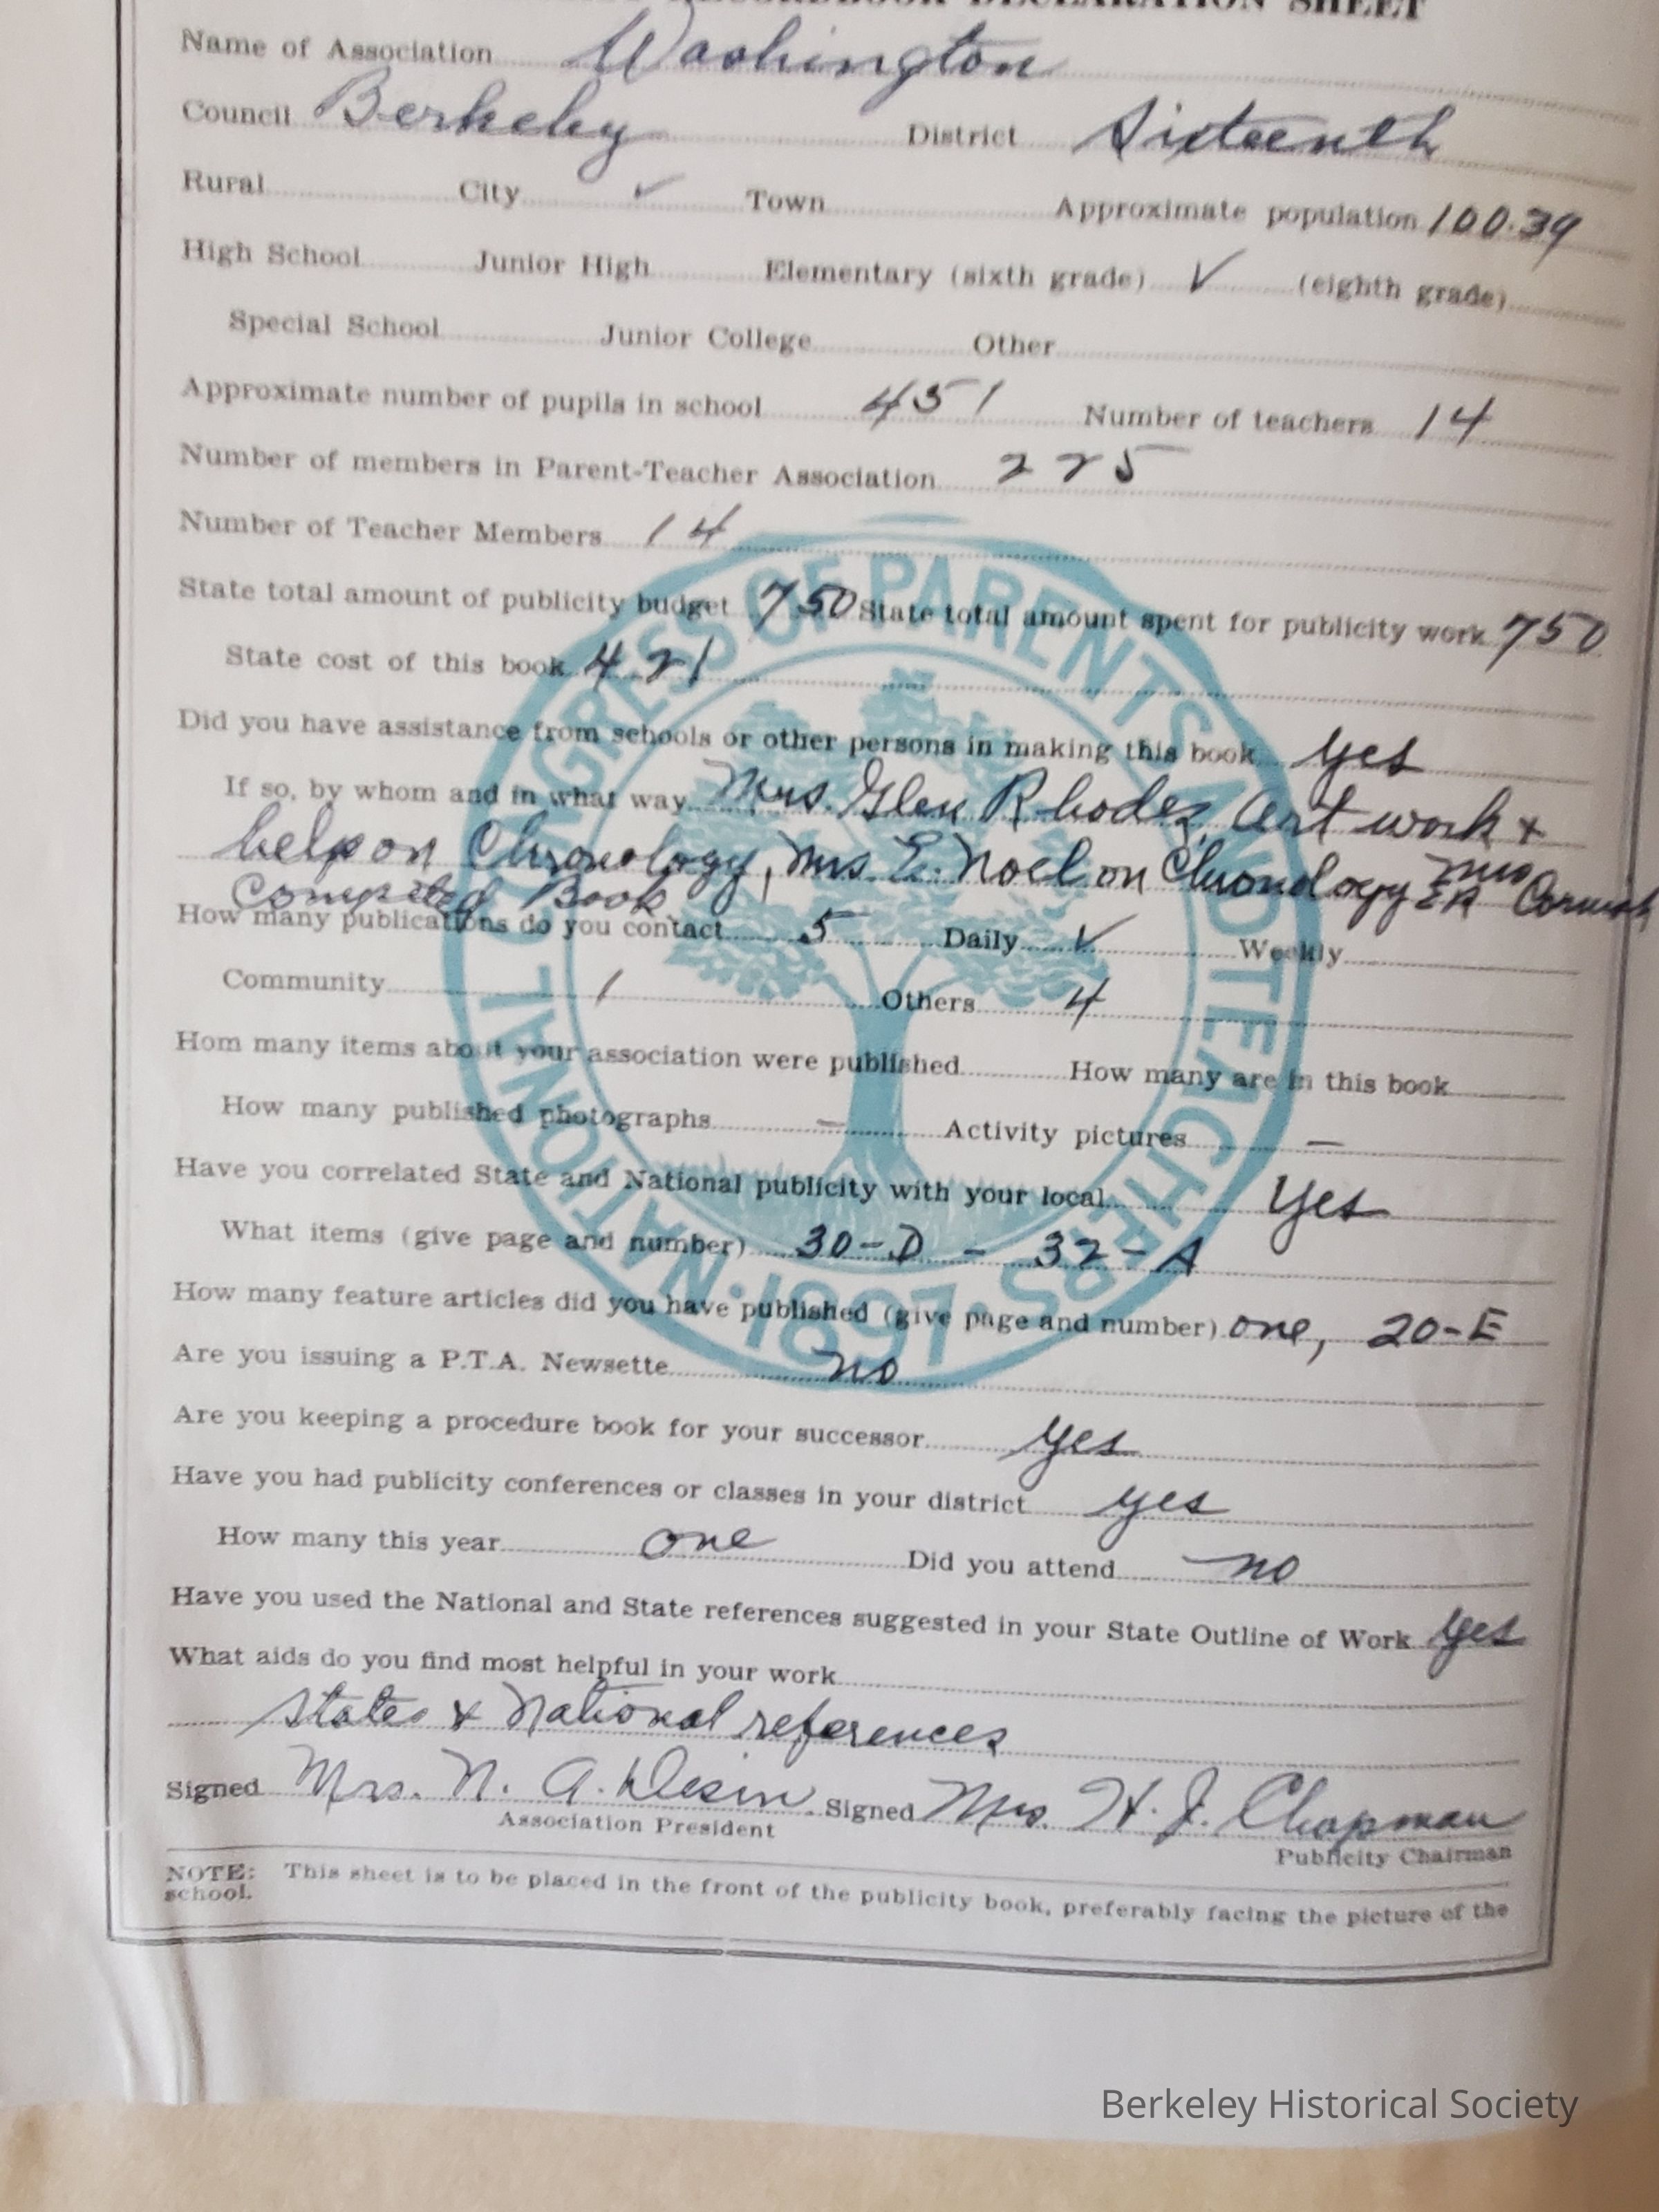 RECORDBOOK DECLARATION SHEET
Name of Association Washington
Council Berkeley District Sixteenth
Rural City ✓ Town Approximate population 100.39
High School Junior High Elementary (sixth grade) ✓ (eighth grade)
Special School Junior College Other
Approximate number of pupils in school 451 Number of teachers 14
Number of members in Parent-Teacher Association 225
Number of Teacher Members 14
State total amount of publicity budget 750 State total amount spent for publicity work 750
State cost of this book 4.21
Did you have assistance from schools or other persons in making this book yes
If so, by whom and in what way Mrs. Glen Rhodes, Art work +
help on Chronology, Mrs. E. Noel on Chronology Mrs
ER
Completed Book
How many publications do you contact 5 Daily ✓ Weekly
Community 1 Others 4
Hom many items about your association were published How many are in this book
How many published photographs — Activity pictures —
Have you correlated State and National publicity with your local Yes
What items (give page and number) 30-D - 32-A
How many feature articles did you have published (give page and number) one, 20-E
Are you issuing a P.T.A. Newsette no
Are you keeping a procedure book for your successor yes
Have you had publicity conferences or classes in your district yes
How many this year one Did you attend no
Have you used the National and State references suggested in your State Outline of Work yes
What aids do you find most helpful in your work
States & National references
Signed Mrs. N. A. Signed Mrs. H. J. Chapman
Association President
Publicity Chairman
NOTE: This sheet is to be placed in the front of the publicity book, preferably facing the picture of the
school.
NATIONAL CONGRESS OF PARENTS AND TEACHERS · 1897 ·
Berkeley Historical Society